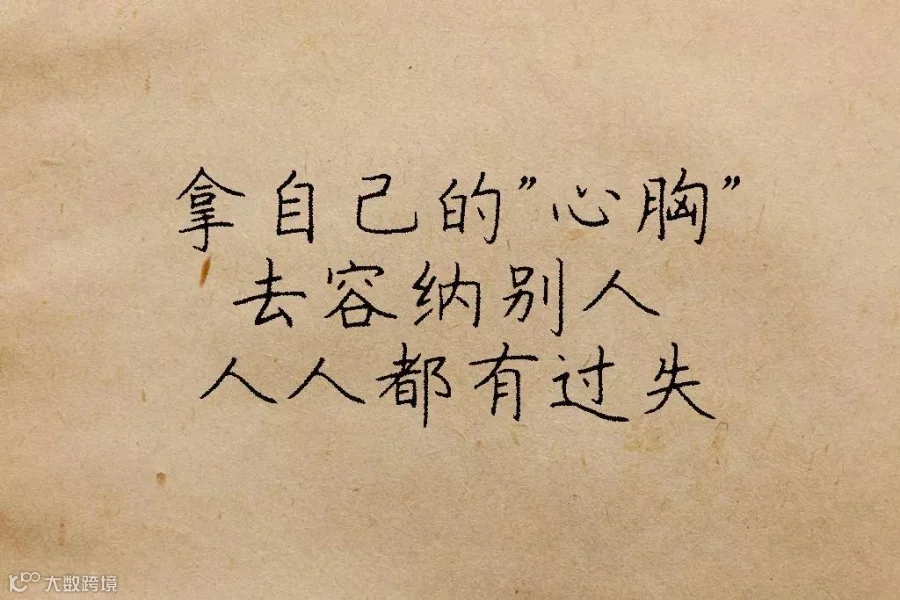 拿自己的”心胸”
去容纳别人
人人都有过失
大数跨境